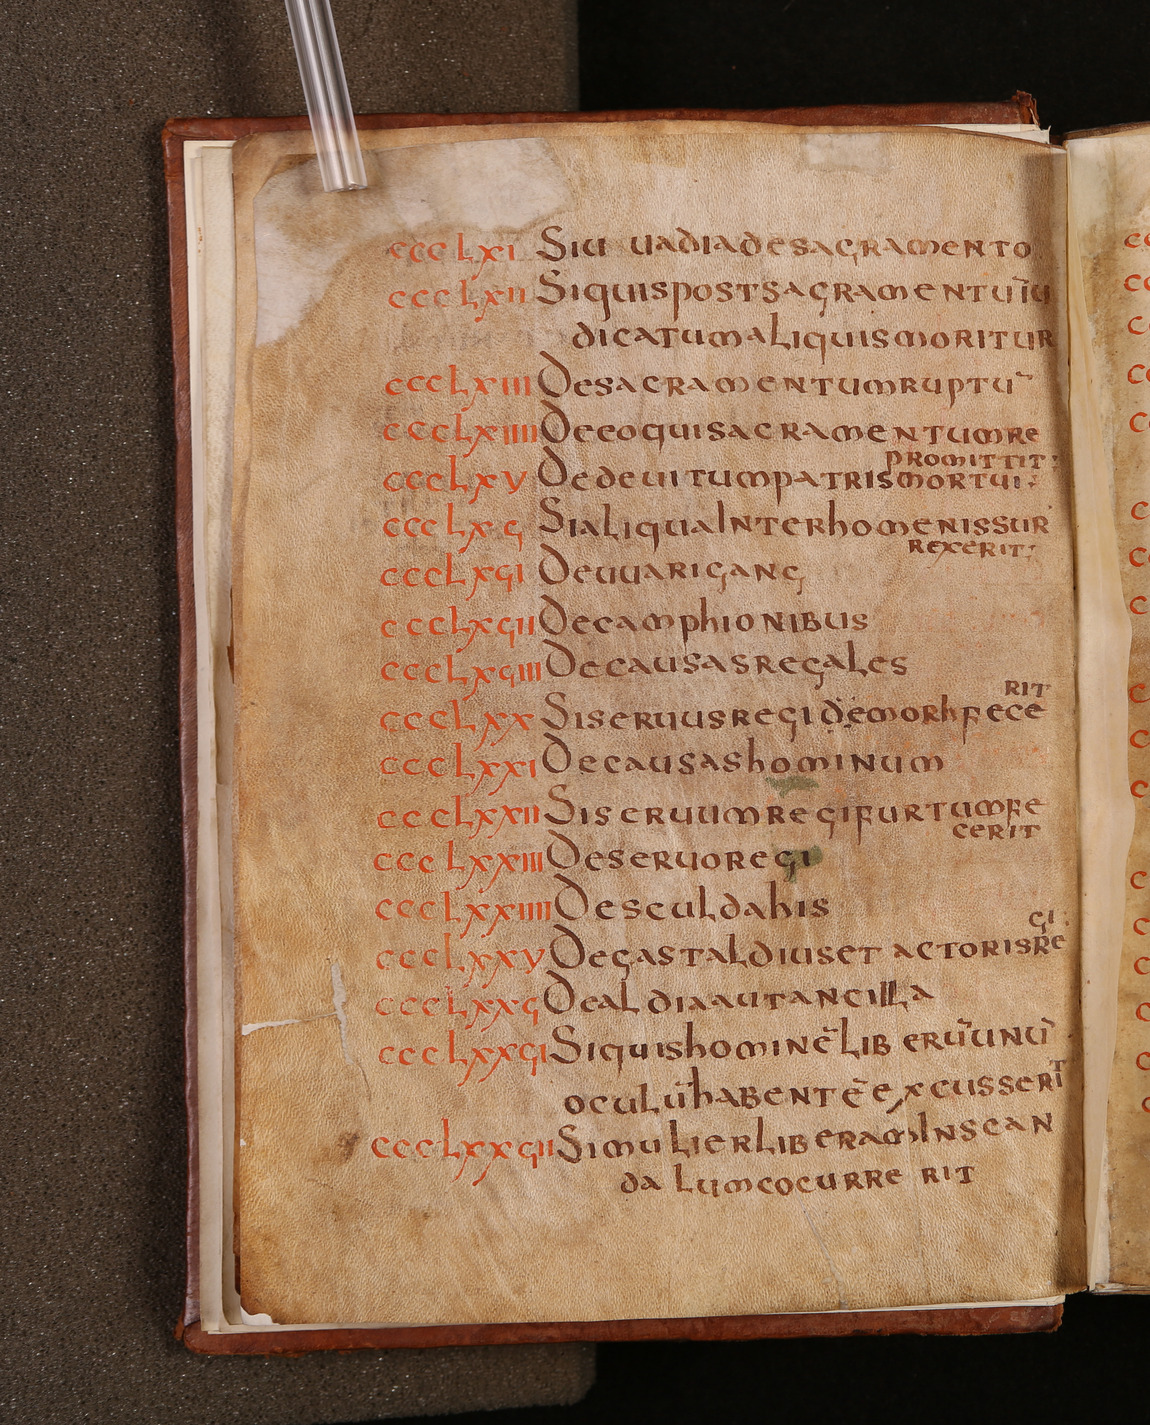 CCCLXI Siu uadia de sacramento
CCCLXII Si quis post sacramentū iu
dicatum aliquis moritur
CCCLXIII De sacramentum ruptū
CCCLXIIII De eo qui sacramentum re
promittit:
CCCLXV De deuitum patris mortui:
CCCLXϚ Si aliqua Inter homenis sur
rexerit:
CCCLXϚI De uuarigang
CCCLXϚII De camphionibus
CCCLXϚIII De causas regales
CCCLXX Si seruus regi demorh fece
rit
CCCLXXI De causas hominum
CCCLXXII Si seruum regi furtum fe
cerit
CCCLXXIII De seruo regi
CCCLXXIIII De sculdahis
CCCLXXV De gastaldius et actoris re
gi:
CCCLXXϚ De aldia aut ancilla
CCCLXXϚI Si quis hominē liberū unū
oculū habentē excusserit
CCCLXXϚII Si mulier liberam In scan
dalum cocurrerit